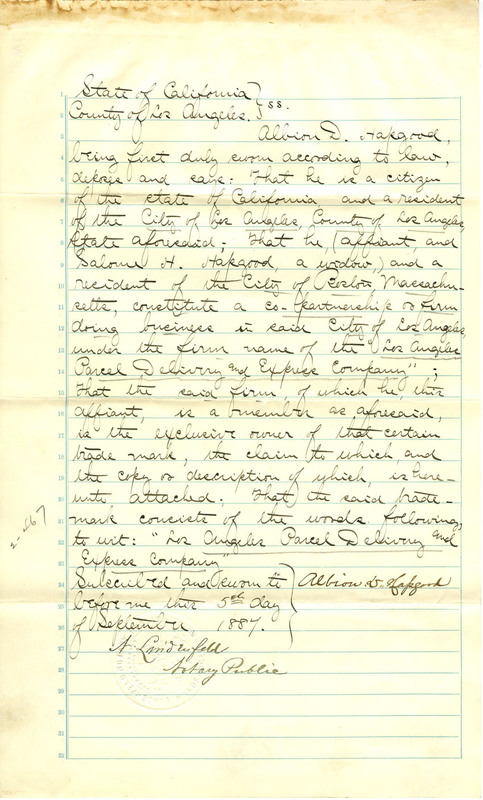 State of California } ss.
County of Los Angeles.
Albion D. Hapgood,
being first duly sworn according to law,
deposes and says: That he is a citizen
of the state of California, and a resident
of the City of Los Angeles, County of Los Angeles,
State aforesaid; That he, (affiant, and
Salome H. Hapgood, a widow,) and a
resident of the City of Boston, Massachu-
setts, constitute a co-partnership or firm
doing business in said City of Los Angeles,
under the firm name of the "Los Angeles
Parcel Delivery and Express Company";
That the said firm, of which he, this
affiant, is a member as aforesaid,
is the exclusive owner of that certain
trade mark, the claim to which, and
the copy or description of which, is here-
unto attached. That the said trade-
mark consists of the words following,
to wit: "Los Angeles Parcel Delivery and
Express Company"
Subscribed and sworn to } Albion D. Hapgood
before me this 5th day
of September 1887.
A Lindenfeld
Notary Public
2-267
1
3
4
5
6
7
8
9
10
11
12
13
14
15
16
17
18
19
20
21
22
23
24
25
26
27
28
29
30
31
32